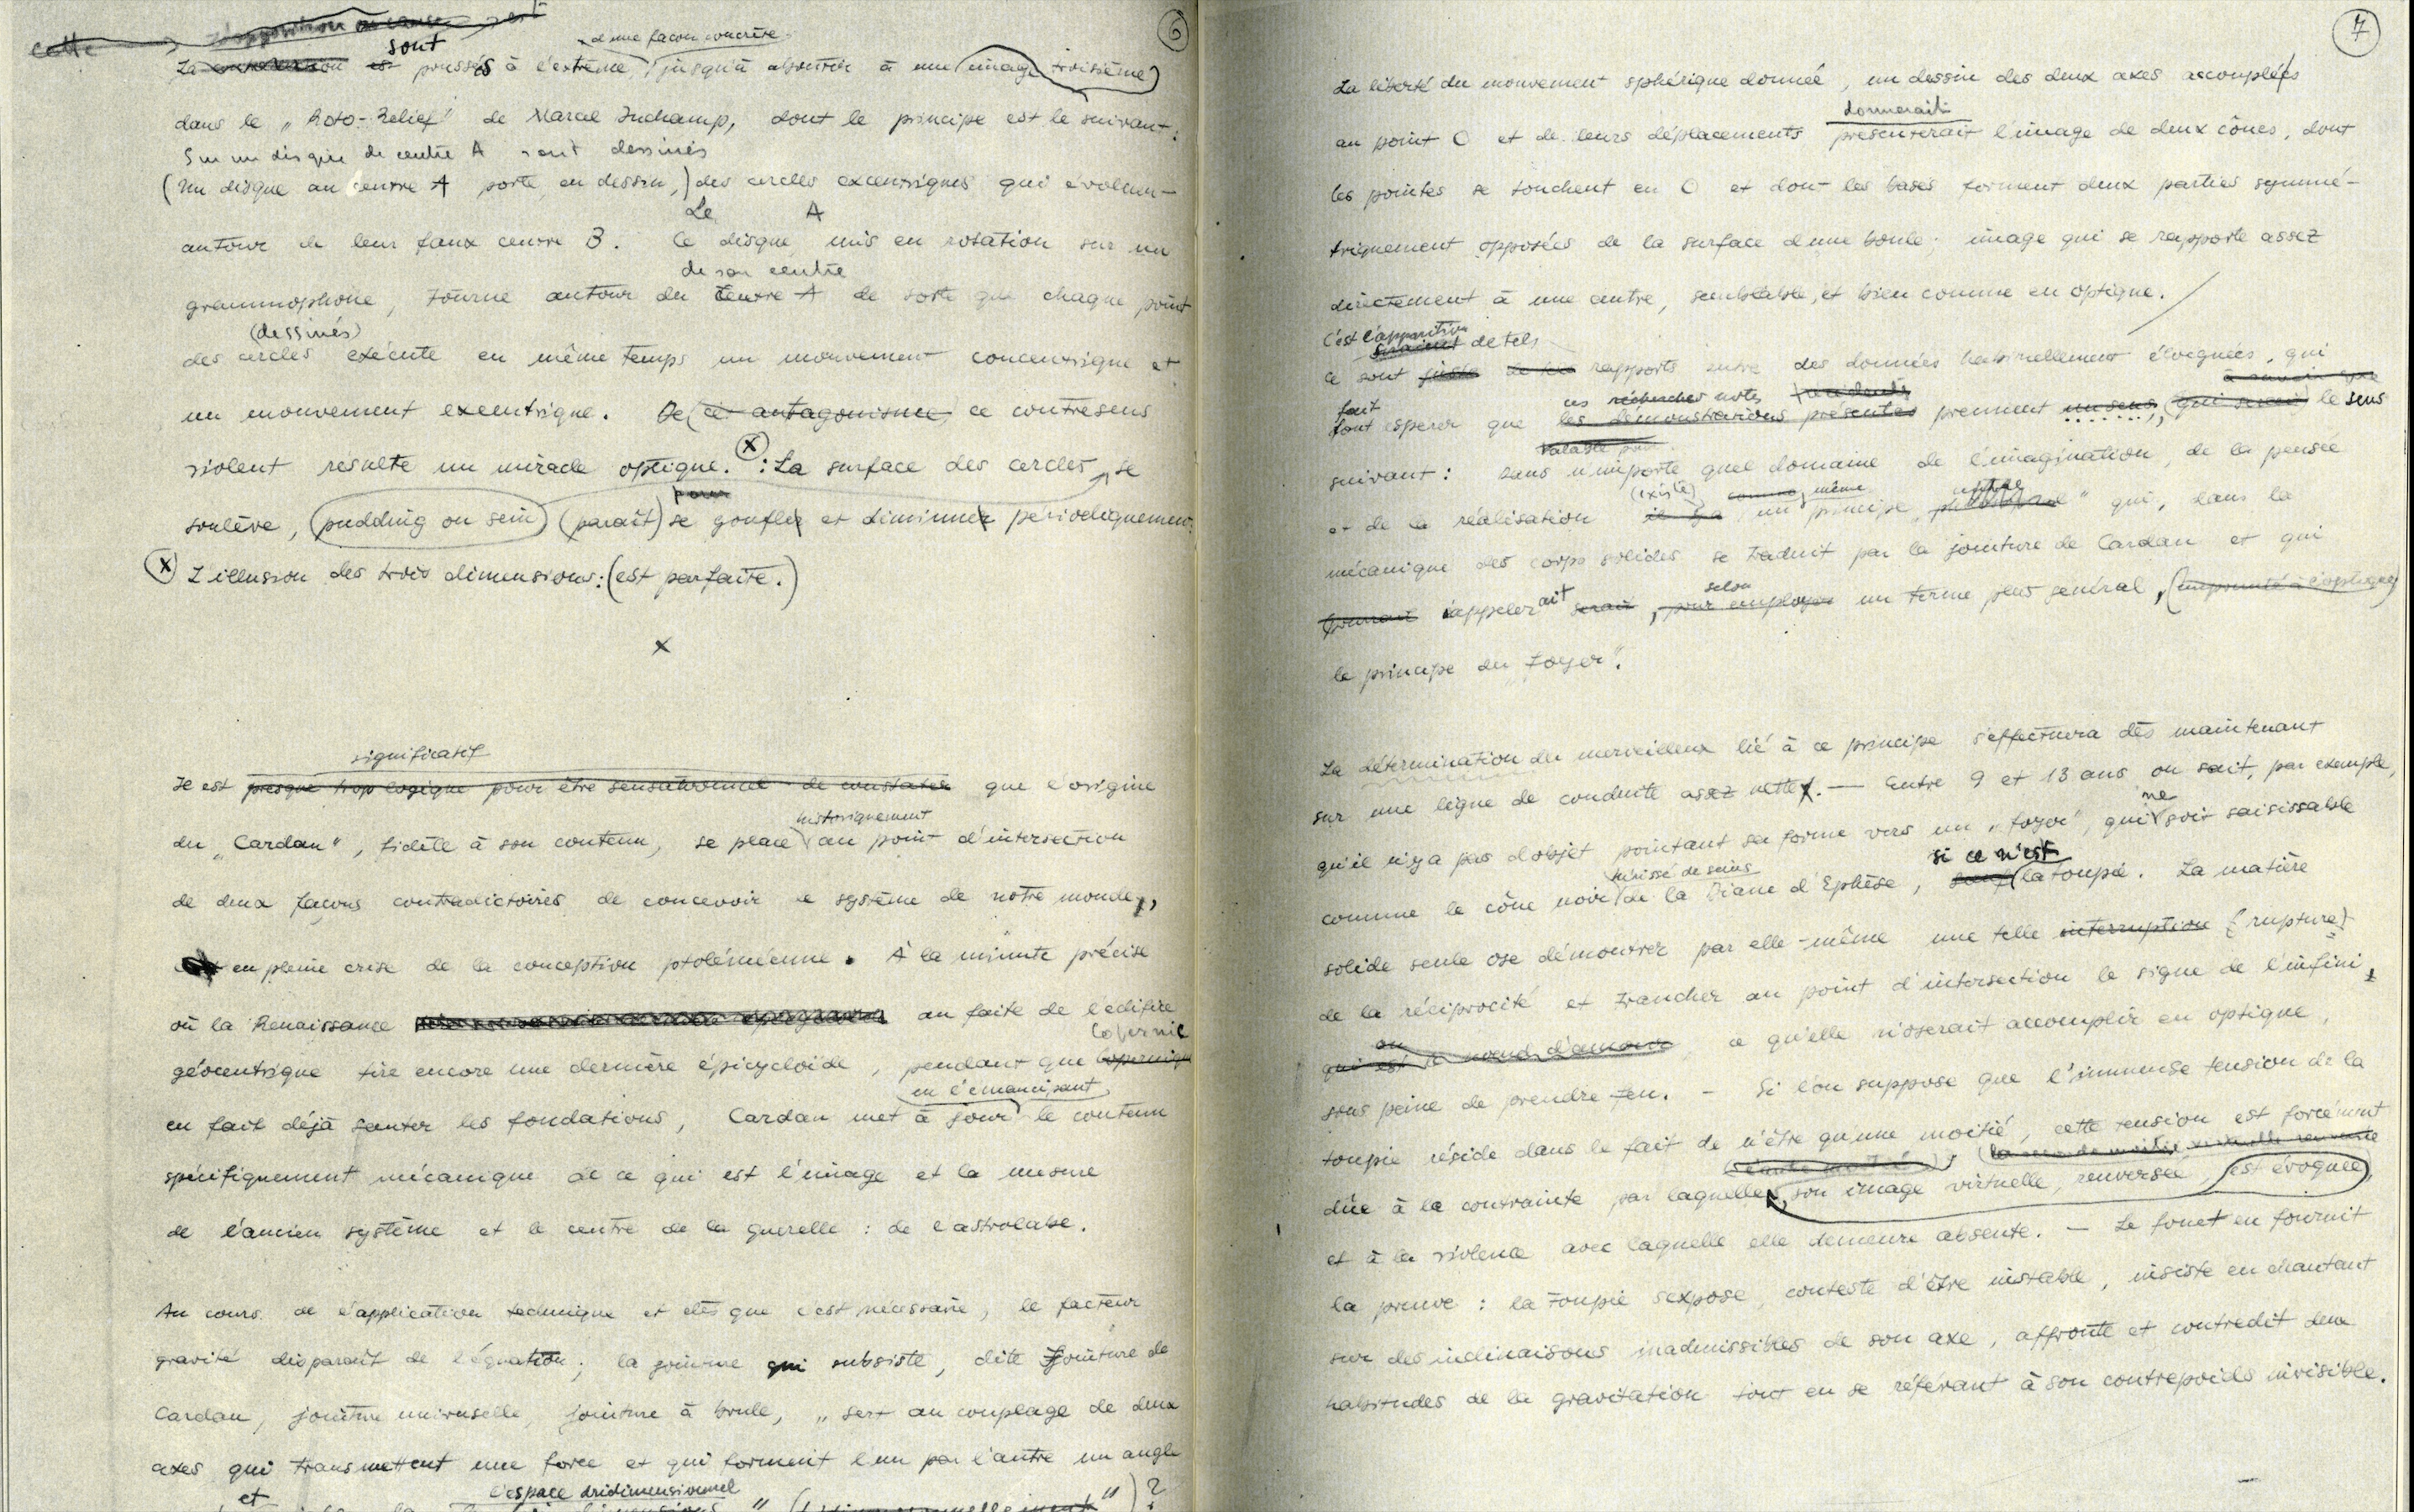 6
cette
sont
d'une façon concrète
La est poussés à l'extrême, jusqu'à aboutir à une (image troisième)
dans le „Roto-Relief" de Marcel Duchamp, dont le principe est le suivant:
Sur un disque de centre A sont dessinés
(Un disque au centre A porte, en dessin,) des cercles excentriques qui évoluen-
Le A
autour de leur faux centre B. Ce disque, mis en rotation sur un
de son centre
grammophone, tourne autour du centre A de sorte que chaque point
(dessinés)
des cercles exécute en même temps un mouvement concentrique et
un mouvement excentrique. De (ce antagonisme) ce contresens
violent resulte un miracle optique. X : La surface des cercles se
soulève, (pudding ou sein) (parait) se gonfler et diminuer périodiquement.
X L'illusion des trois dimensions: (est parfaite.)
x
significatif
Il est presque trop logique pour être sensationnel de constater que l'origine
historiquement
du „Cardan", fidèle à son contenu, se place au point d'intersection
de deux façons contradictoires de concevoir le système de notre monde,
en pleine crise de la conception ptoléméenne. À la minute précise
où la Renaissance au faîte de l'édifice
Copernic
géocentrique tire encore une dernière épicycloïde, pendant que Copernique
en l'émancipant
en fait déjà sauter les fondations, Cardan met à jour le contenu
spécifiquement mécanique de ce qui est l'image et la mesure
de l'ancien système et le centre de la querelle : de l'astrolabe.
Au cours de l'application technique et dès que c'est nécessaire, le facteur
gravité disparait de l'équation; la jointure qui subsiste, dite Jointure de
Cardan, jointure universelle, jointure à boule, „sert au couplage de deux
axes qui transmettent une force et qui forment l'un par l'autre un angle
et l'espace dridimensionnel
7
La liberté du mouvement sphérique donnée, un dessin des deux axes accouplés
donnerait
au point O et de leurs déplacements présenterait l'image de deux cônes, dont
les pointes se touchent en O et dont les bases forment deux parties symmé-
triquement opposées de la surface d'une boule; image qui se rapporte assez
directement à une autre, semblable, et bien comme en optique.
C'est l'apparition
de tels
ce sont juste de tels rapports entre des données habituellement éloignées, qui
fait ces recherches notes
font esperer que les démonstrations présentes prennent un sens, (qui serait) le sens
valable pour
suivant : dans n'importe quel domaine de l'imagination, de la pensée
(existe) comme, même
et de la réalisation il y a un principe " qui, dans la
mécanique des corps solides se traduit par la jointure de Cardan et qui
selon
pourrait s'appelerait serait, pour employer un terme plus général, (emprunté à l'optique)
le principe du „Foyer".
La détermination du merveilleux lié à ce principe s'effectuera dès maintenant
sur une ligne de conduite assez nette. — Entre 9 et 13 ans on sait, par exemple,
ne
qu'il n'y a pas d'objet pointant sa forme vers un „foyer", qui soit saisissable
hérissé de seins si ce n'est
comme le cône noir de la Diane d'Ephèse, sauf (la toupie. La matière
solide seule ose démontrer par elle-même une telle interruption (rupture)
de la réciprocité et trancher au point d'intersection le signe de l'infini,
ou
qui est le nœud d'amour, ce qu'elle n'oserait accomplir en optique,
sous peine de prendre feu. — Si l'on suppose que l'immense tension de la
toupie réside dans le fait de n'être qu'une moitié, cette tension est forcément
l'autre moitié
dûe à la contrainte par laquelle, son image virtuelle, renversée, (est évoquée)
et à la violence avec laquelle elle demeure absente. — Le fouet en fournit
la preuve : la toupie s'expose, conteste d'être instable, insiste en chantant
sur des inclinaisons inadmissibles de son axe, affronte et contredit deux
habitudes de la gravitation tout en se référant à son contrepoids invisible.